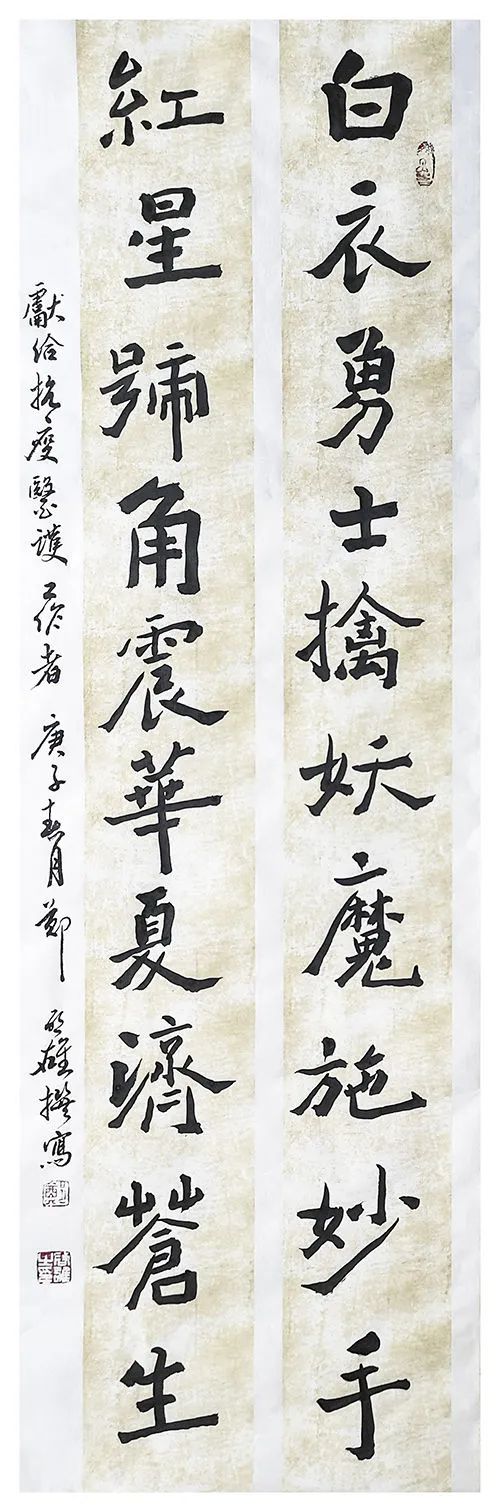 白衣勇士擒妖魔施妙手
紅星號角震華夏濟蒼生
獻給抗疫醫護工作者 庚子春月鄭啟雄撰寫